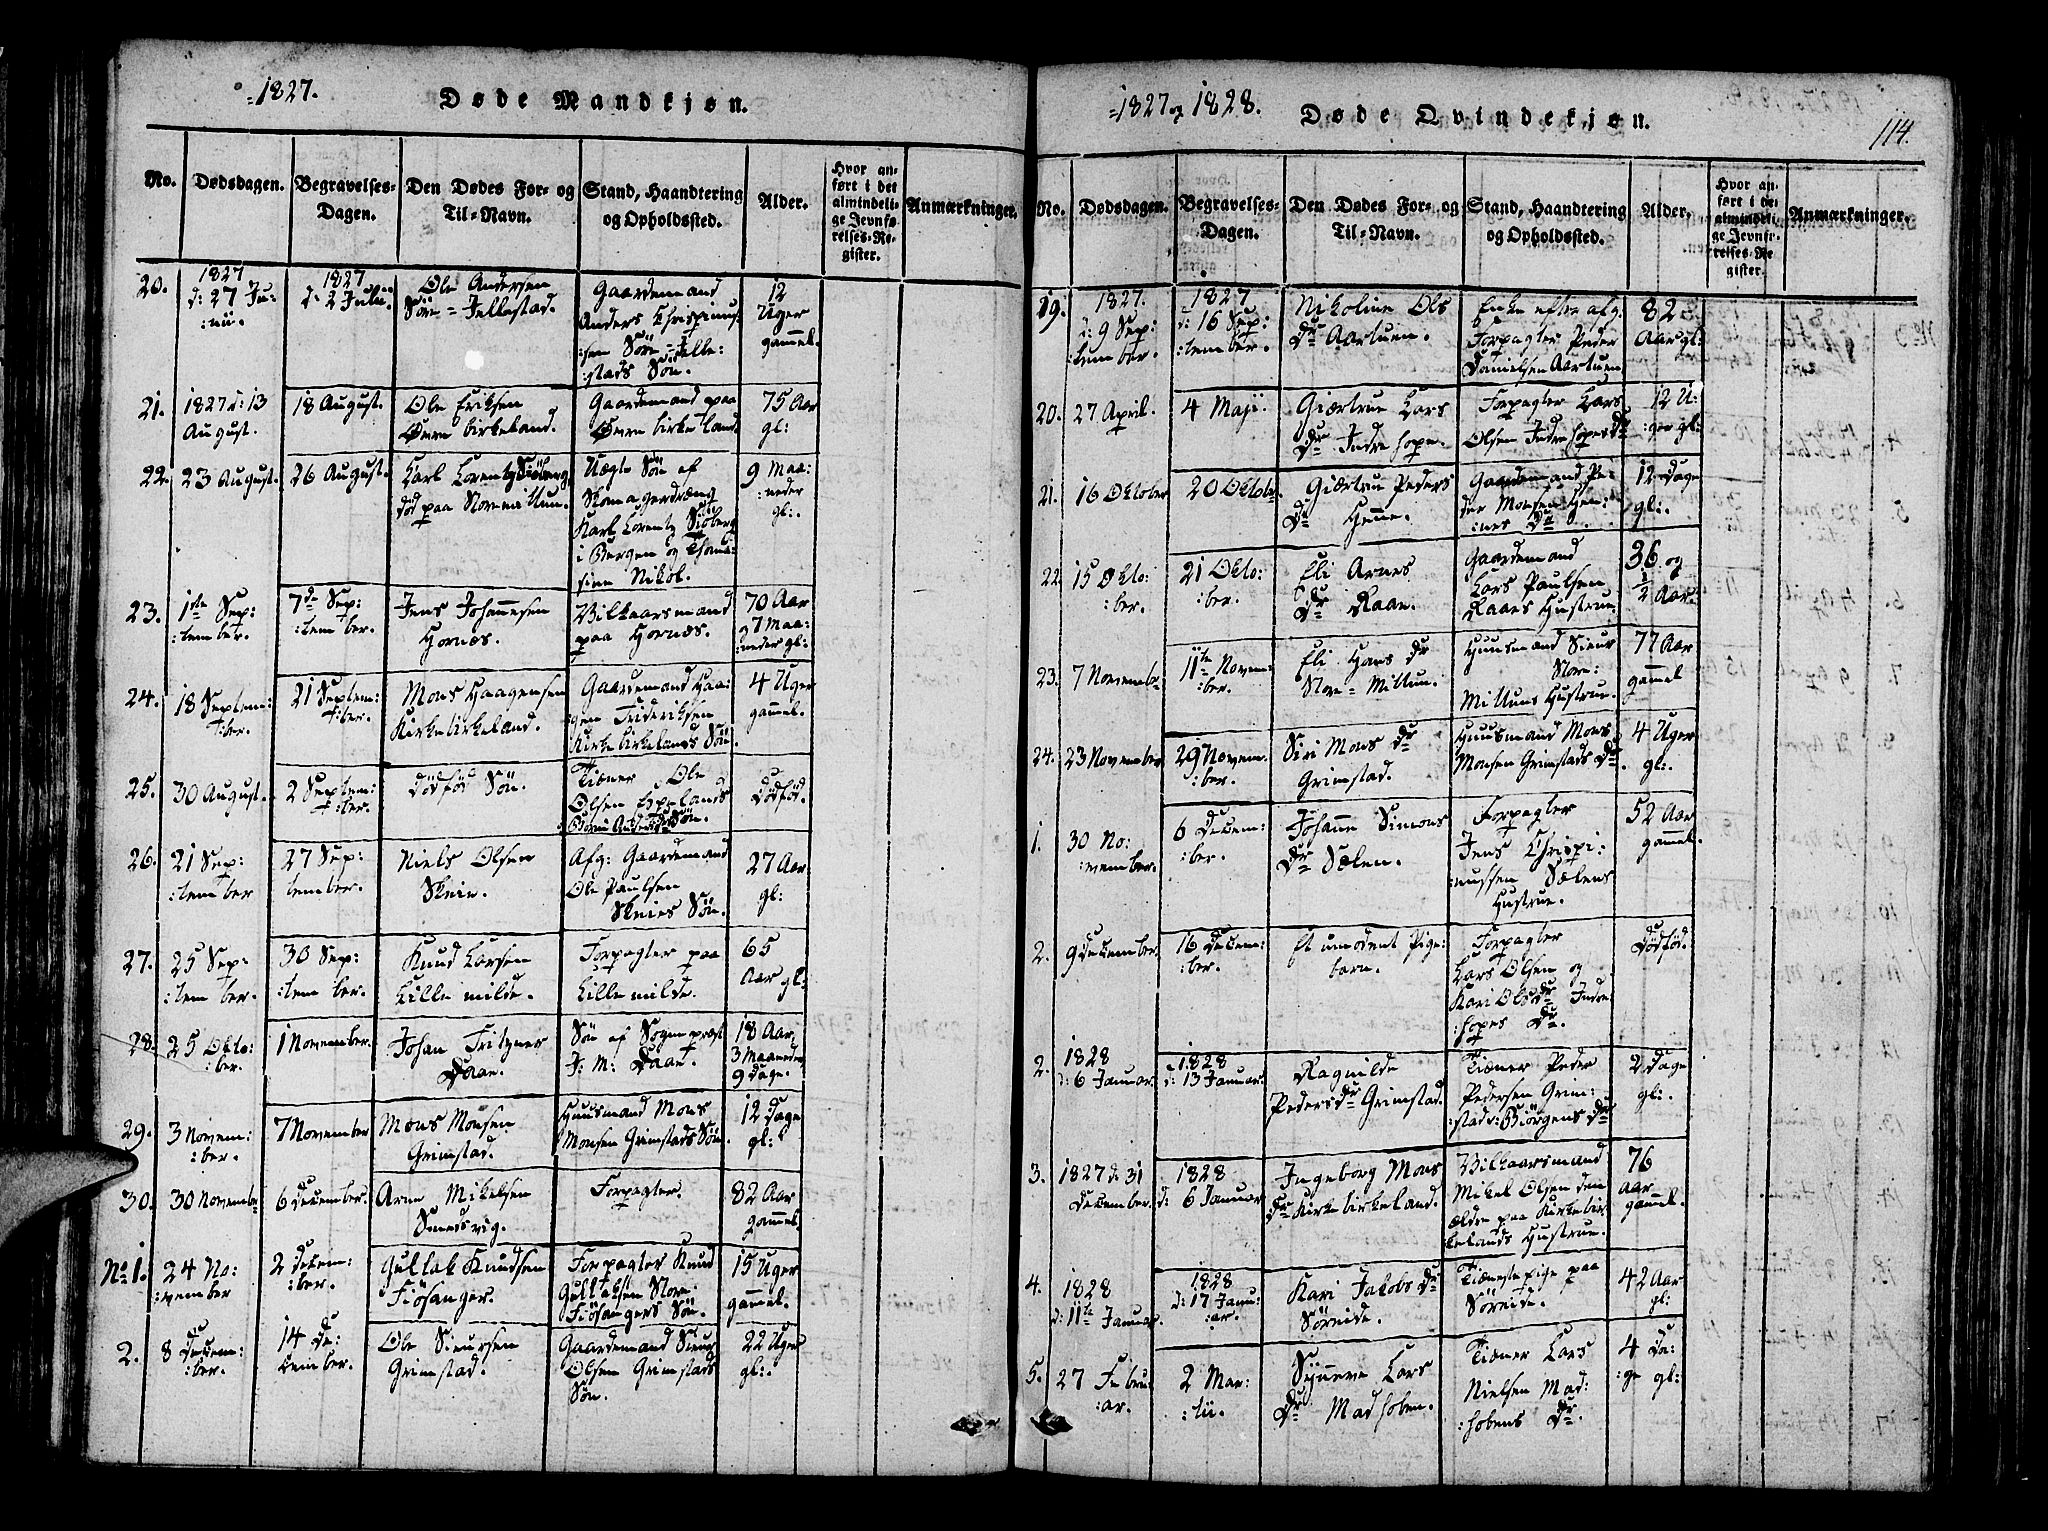 1827.
Døde Mandkjøn.
No.
Dødsdagen.
Begravelses-
Dagen.
Den Dødes For- og
Til-Navn.
Stand, Haandtering
og Opholdssted.
Alder.
Hvor an-
ført i det
almindeli-
ge Jevnfø-
relses-Re-
gister.
Anmærkninger.
20.
1827
d: 27 Ju:
:nii.
1827
d: 2 Julii.
Ole Andersen
Söre = Fellestad.
Gaardemand
Anders Chrispinus:
:sen Söre = Felle:
:stads Sön.
12
Uger
gammel.
21.
1827 d: 13
August.
18 August.
Ole Eriksen
Övre birkeland.
Gaardemand paa
Övre birkeland.
75 Aar
gl:
22.
23 August.
26 August.
Karl Lorentz Siöberg
död paa Norene Uun.
Uægte Sön af
Skomagerdræng
Karl Lorentz Siöberg
i Bergen og Thoma:
sine Nikol.
9 Maa:
:neder
gl:.
23.
1ste Sep:
:tember.
7de Sep:
:tember.
Jens Johannesen
Hornæs.
Vilkaarsmand
paa Hornæs.
70 Aar
og 7 Maa:
:neder gl:
24.
18 Septem:
:ber.
21 Septem:
:ber.
Mons Haagensen
Kirkebirkeland.
Gaardemand Haa:
:gen Frideriksen
Kirkebirkelands Sön.
4 Uger
gammel.
25.
30 August.
2 Septem:
:ber.
dödföd Sön.
Tiener Ole
Olsen Espelands
Sön.
Dödföd.
26.
21 Sep:
:tember
27 Sep:
tember.
Niels Olsen
Skeie.
Afg: Gaardemand
Ole Paulsen
Skeies Sön.
27 Aar
gl:
27.
25 Sep:
:tember.
30 Sep:
:tember.
Knud Larsen
Lille milde.
Forpagter paa
Lille milde.
65
Aar gl:
28.
25 Okto:
:ber.
1 November.
Johan Fritzner
Daae.
Sön af Sognepræst
J: M: Daae.
18 Aar,
3 Maaneder,
9 Dage.
29.
3 Novem:
:ber.
7 November
Mons Monsen
Grimstad.
Huusmand Mons
Monsen Grimstads Sön.
12 Dage
gl:
30.
30 November
6 December.
Arne Mikelsen
Smedsvig.
Forpagter.
82 Aar
gammel.
No 1.
24 No:
:vember
2 Decem:
:ber.
Gullak Knudsen
Fiösanger.
Forpagter Knud
Gullaksen Nore
Fiösangers Sön.
15 Uger
gammel.
2.
8 Decem:
:ber.
14 De:
cember.
Ole Sieursen
Grimstad.
Gaardemand Sieur
Olsen Grimstads
Sön.
22 Uger
gl:.
1827 og 1828.
Døde Qvindekjøn.
114.
No.
Dødsdagen.
Begravelses-
Dagen.
Den Dødes For- og
Til-Navn.
Stand, Haandtering
og Opholdssted.
Alder.
Hvor an-
ført i det
almindeli-
ge Jevnfø-
relses-Re-
gister.
Anmærkninger.
19.
1827.
d: 9 Sep:
:tember.
1827
d: 16 Sep:
:tember.
Nikoline Ols
Dr Aartuen.
Enke efter afg:
Forpagter Peder
Danielsen Aartuen
82
Aar gl:
20.
27 April.
4 Maji.
Giærtrue Lars
Dr Indre hope.
Forpagter Lars
Olsen Indre hopes Dr
12 U:
:ger gl:
21.
16 Oktober
20 Oktobr.
Giærtrue Peders
Dr Henne.
Gaardemand Pe:
der Monsen Hen:
:nes Dr
12 Dage
gl:.
22.
15 Okto:
:ber.
21 Okto:
:ber.
Eli Arnes
Dr Raae.
Gaardemand
Lars Paulsen
Raaes Hustrue
36 og
1/2 Aar.
23.
7 Novembr.
11te Novem:
:ber.
Eli Hans Dr
Nore = Mittun.
Huusmand Sieur
Nore:
Mittuns Hustrue.
77 Aar
gammel
24.
23 November
29 Novem.
:ber.
Siri Mons Dr
Grimstad.
Huusmand Mons
Monsen Grimstads Dr.
4 Uger
gl:.
1.
30 No:
:vember.
6 Decem:
:ber.
Johanne Simons
Dr Sælen.
Forpagter
Jens Chrispi:
:nussen Sælens
Hustrue.
52 Aar
gammel.
2.
9 December.
16 Decem:
:ber.
Et umodent Pige:
barn.
Forpagter
Lars Olsen og
Kari Olsdr Indre
:hopes Dr.
Dödföd.
2.
1828
d: 6 Januar.
1828
d: 13 Januar.
Ragnilde
Peders Dr Grimstad.
Tiener Peder
Pedersen Grim:
:stad: Biörgens Dr
2 Dage
gl:.
3.
1827 d: 31
December.
1828
d: 6 Januar
Ingeborg Mons
Dr Kirkebirkeland.
Vilkaarsmand
Mikel Olsen den
ældre paa Kirkebir:
kelands Hustrue.
76
Aar
gammel.
4.
1828
d: 11te Januar.
1828
d: 17 Janu:
:ar.
Kari Jakobs Dr
Söreide.
Tienestepige paa
Söreide.
42 Aar
gl:
5.
27 Febru:
:ar.
2 Mar:
:tii.
Synneve Lars
Dr Madhoben.
Tiener Lars
Nielsen Mad:
:hobens Dr.
4 Da:
:ge gl: